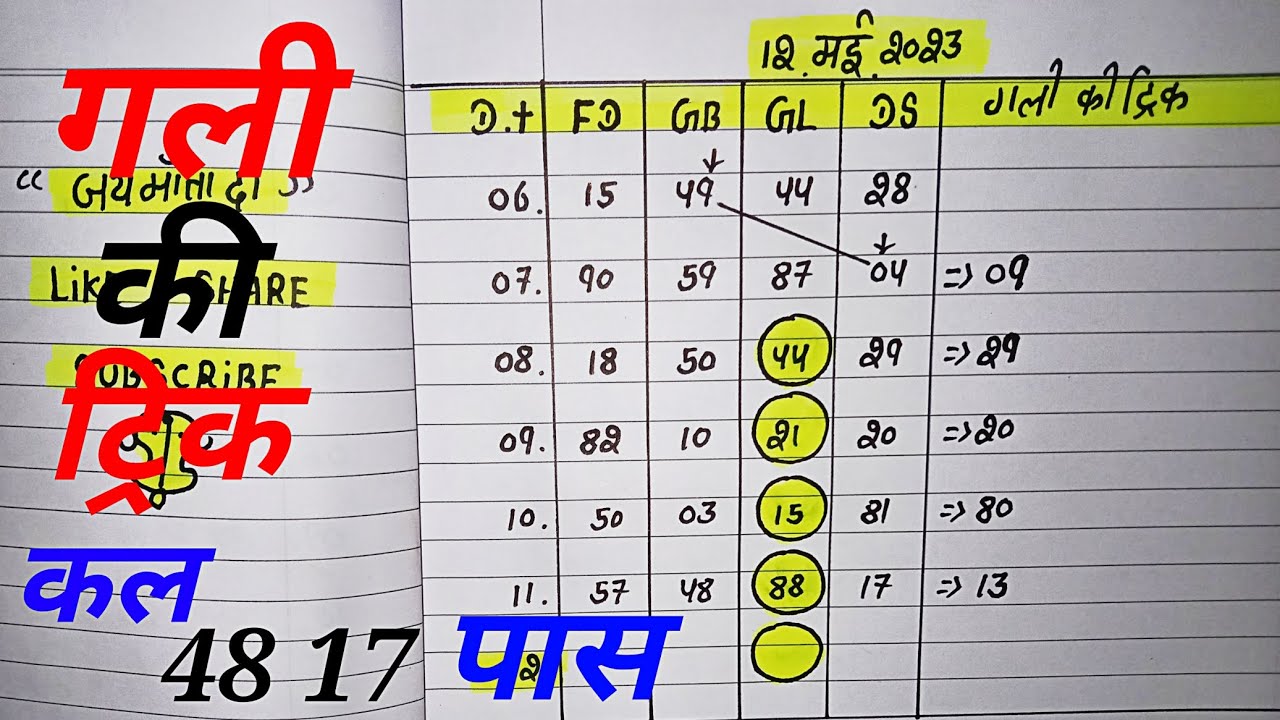 गली
की
ट्रिक
कल
48 17 पास
“ जय माँता दी ”
Like SHARE
SUBSCRIBE
१२.मई.२०२३
D.t FD GB GL DS गली की ट्रिक
०6. 15 49 44 २8
०7. 90 59 87 ०4 => ०9
०8. 18 50 44 २9 => २9
०9. 8२ 10 २1 २० => २०
10. 50 03 15 81 => 80
11. 57 48 88 17 => 13
२